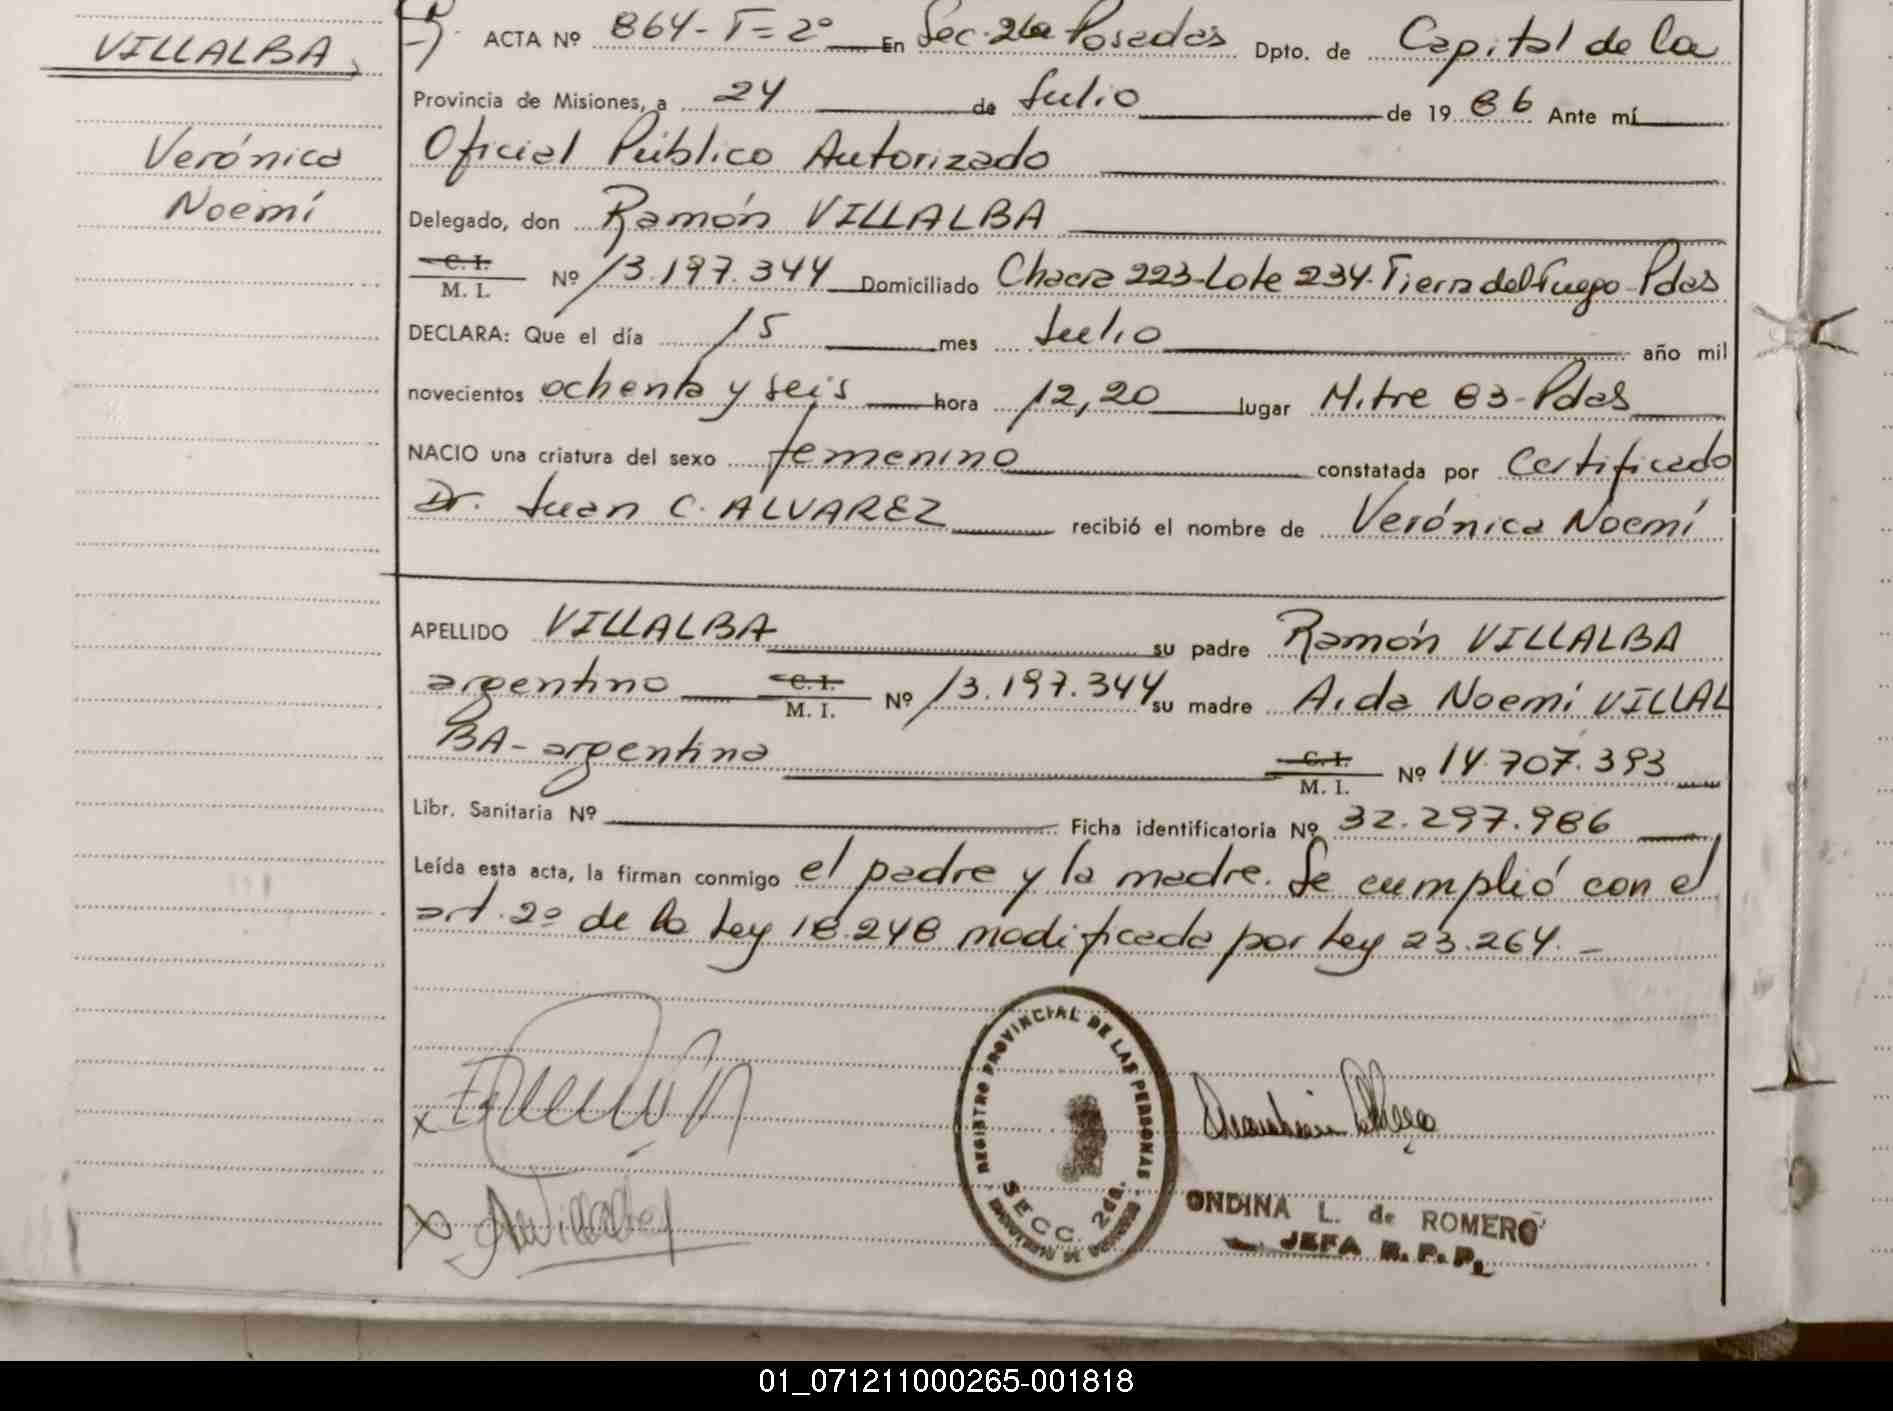 VILLALBA
Verónica
Noemí
ACTA Nº 864-T=2º En Sec. 2da Posadas Dpto. de Capital de la
Provincia de Misiones, a 24 de Julio de 1986 Ante mí
Oficial Público Autorizado
Delegado, don Ramón VILLALBA
C. I.
M. I. Nº 13.197.344 Domiciliado Chacra 223-Lote 234-Tierra del Fuego-Pdas
DECLARA: Que el día 15 mes Julio año mil
novecientos ochenta y seis hora 12,20 lugar Mitre 83-Pdas
NACIO una criatura del sexo femenino constatada por Certificado
Dr. Juan C. ALVAREZ recibió el nombre de Verónica Noemí
APELLIDO VILLALBA su padre Ramón VILLALBA
argentino C. I. M. I. Nº 13.197.344 su madre Aida Noemí VILLAL
BA-argentina C. I. M. I. Nº 14.707.393
Libr. Sanitaria Nº Ficha identificatoria Nº 32.297.986
Leída esta acta, la firman conmigo el padre y la madre. Se cumplió con el
art. 2º de la Ley 18.248 modificada por Ley 23.264.-
REGISTRO PROVINCIAL DE LAS PERSONAS
SECC. 2da.
ONDINA L. de ROMERO
JEFA R. P. P.
01_071211000265-001818